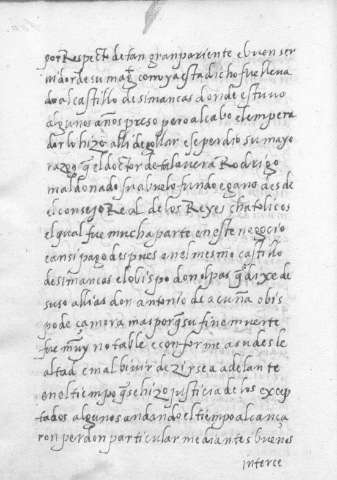 por Respecto de tan gran pariente el buen ser
uidor de su mag.t como ya esta dicho fue lleua
do al castillo de simancas donde estuvo
algunos años preso pero al cabo el empera
dor lo hizo alli degollar e se perdio su mayo
razgo q̃ el doctor de talauera Rodrigo
maldonado su abuelo fundo e gano desde
el consejo Real de los Reyes chatolicos
el qual fue mucha parte en este negocio
e ansi pago despues en el mesmo castillo
de simancas el obispo don opas q̃ dixe de
suso alias don antonio de acuña obis
po de çamora mas porq̃ su fin e muerte
fue muy notable e conforme a su desle
altad e mal biuir dezirse a adelante
en el tiempo q̃ se hizo justicia de los excep
tados algunos andando el tiempo alcança
ron perdon particular mediantes buenos
interce